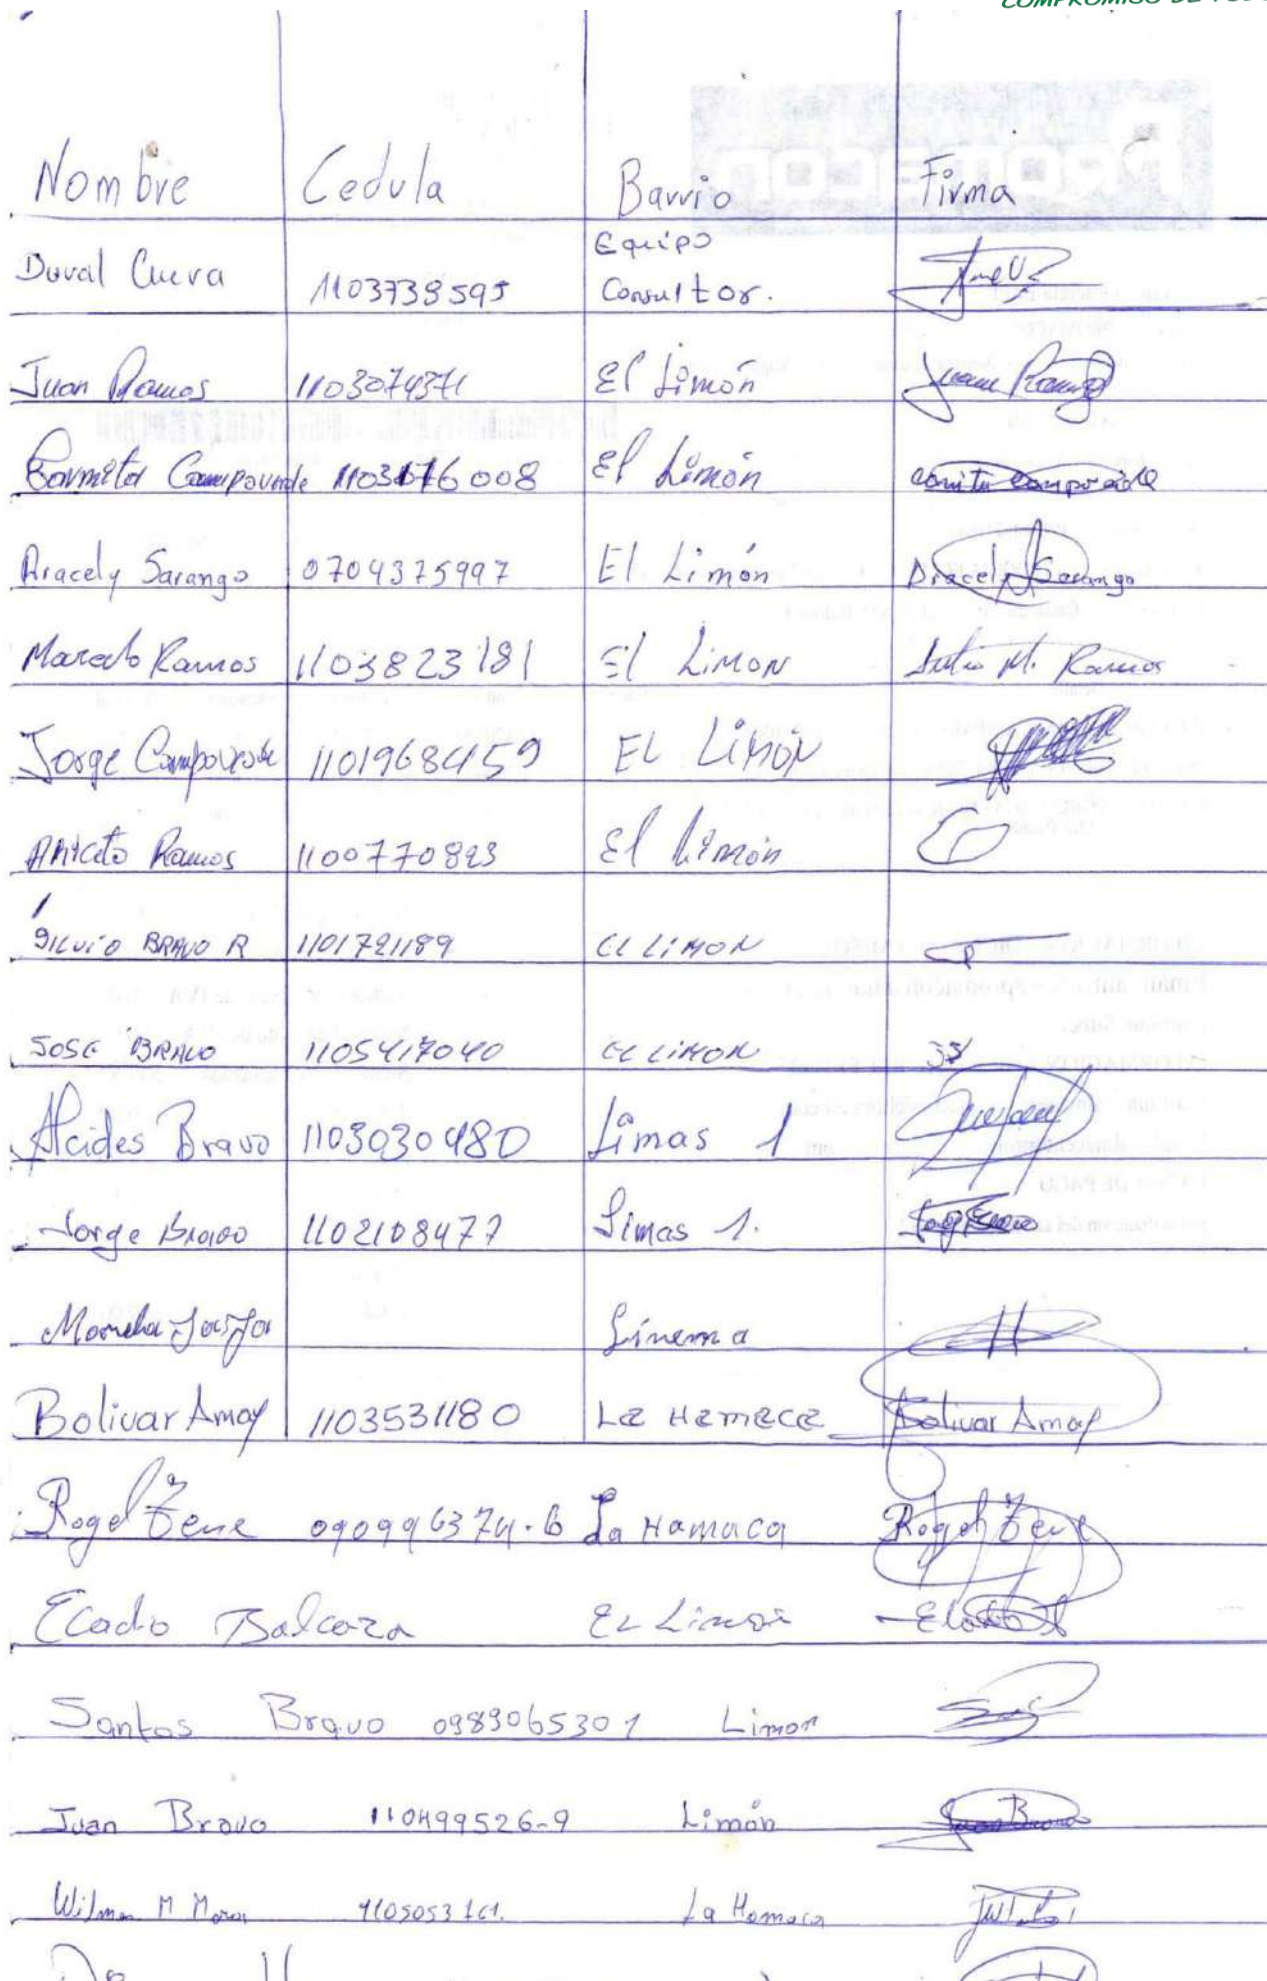 Nombre Cedula Barrio Firma
Duval Cueva 1103738595 Equipo Consultor.
Juan Ramos 1103074371 El Limón Juan Ramos
Carmita Campoverde 1103676008 El Limón
Aracely Sarango 0704375997 El Limón Aracely Sarango
Marcelo Ramos 1103823181 El Limon Julio M. Ramos
Jorge Campoverde 1101968459 EL LiMóN
Aniceto Ramos 1100770893 El Limón
SILVIO BRAVO R 1101721189 EL LIMON
JOSE BRAVO 1105417040 EL LIMON
Alcides Bravo 1103030480 Limas 1
Jorge Bravo 1102108477 Limas 1.
Linema
Bolivar Amay 1103531180 La Hamaca Bolivar Amay
Rogel Zene 090996374-6 La Hamaca Rogel Zene
EL Limon
Santos Bravo 0989065301 Limon
Juan Bravo 110499526-9 Limón Juan Bravo
Wilman M Mora La Hamaca